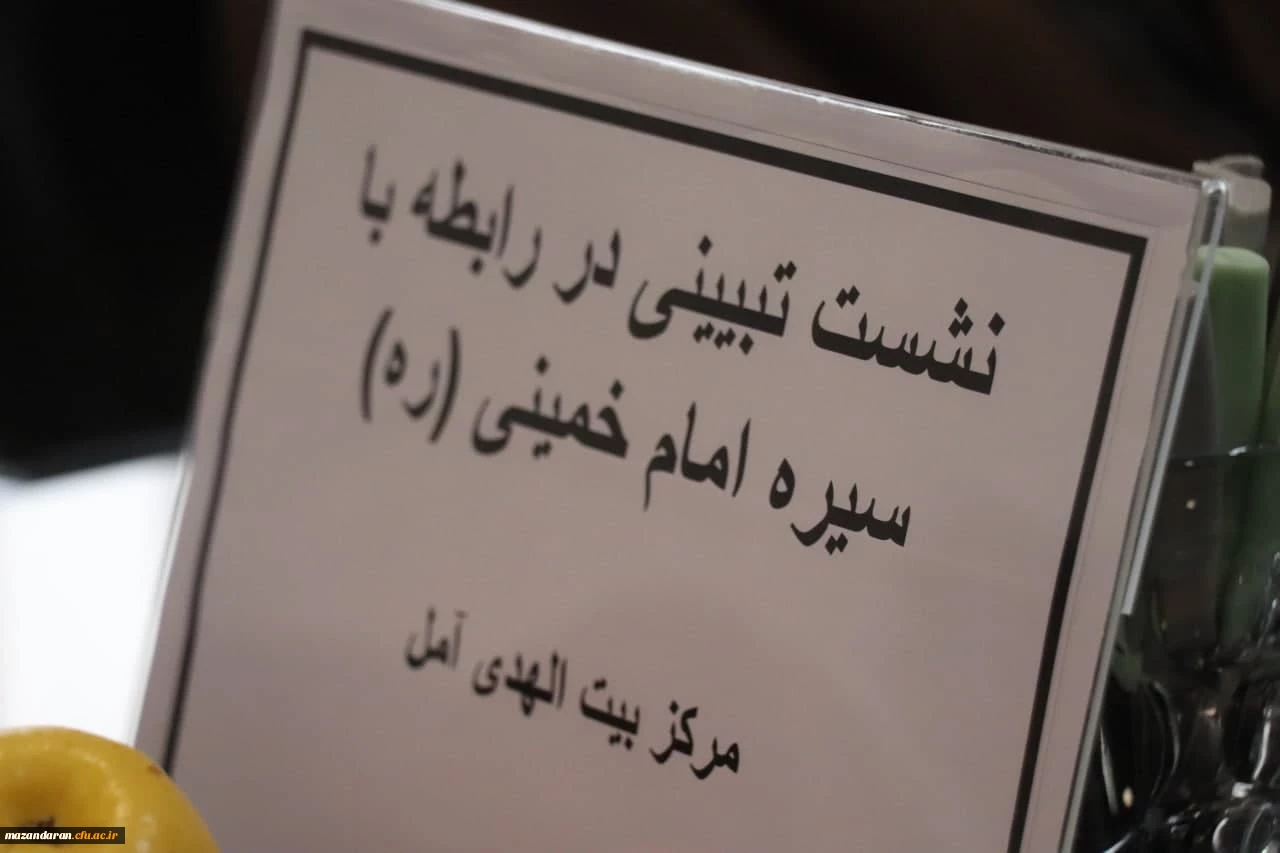 نشست تبیینی در رابطه با
سیره امام خمینی (ره)
مرکز بیت الهدی آمل
mazandaran.cfu.ac.ir